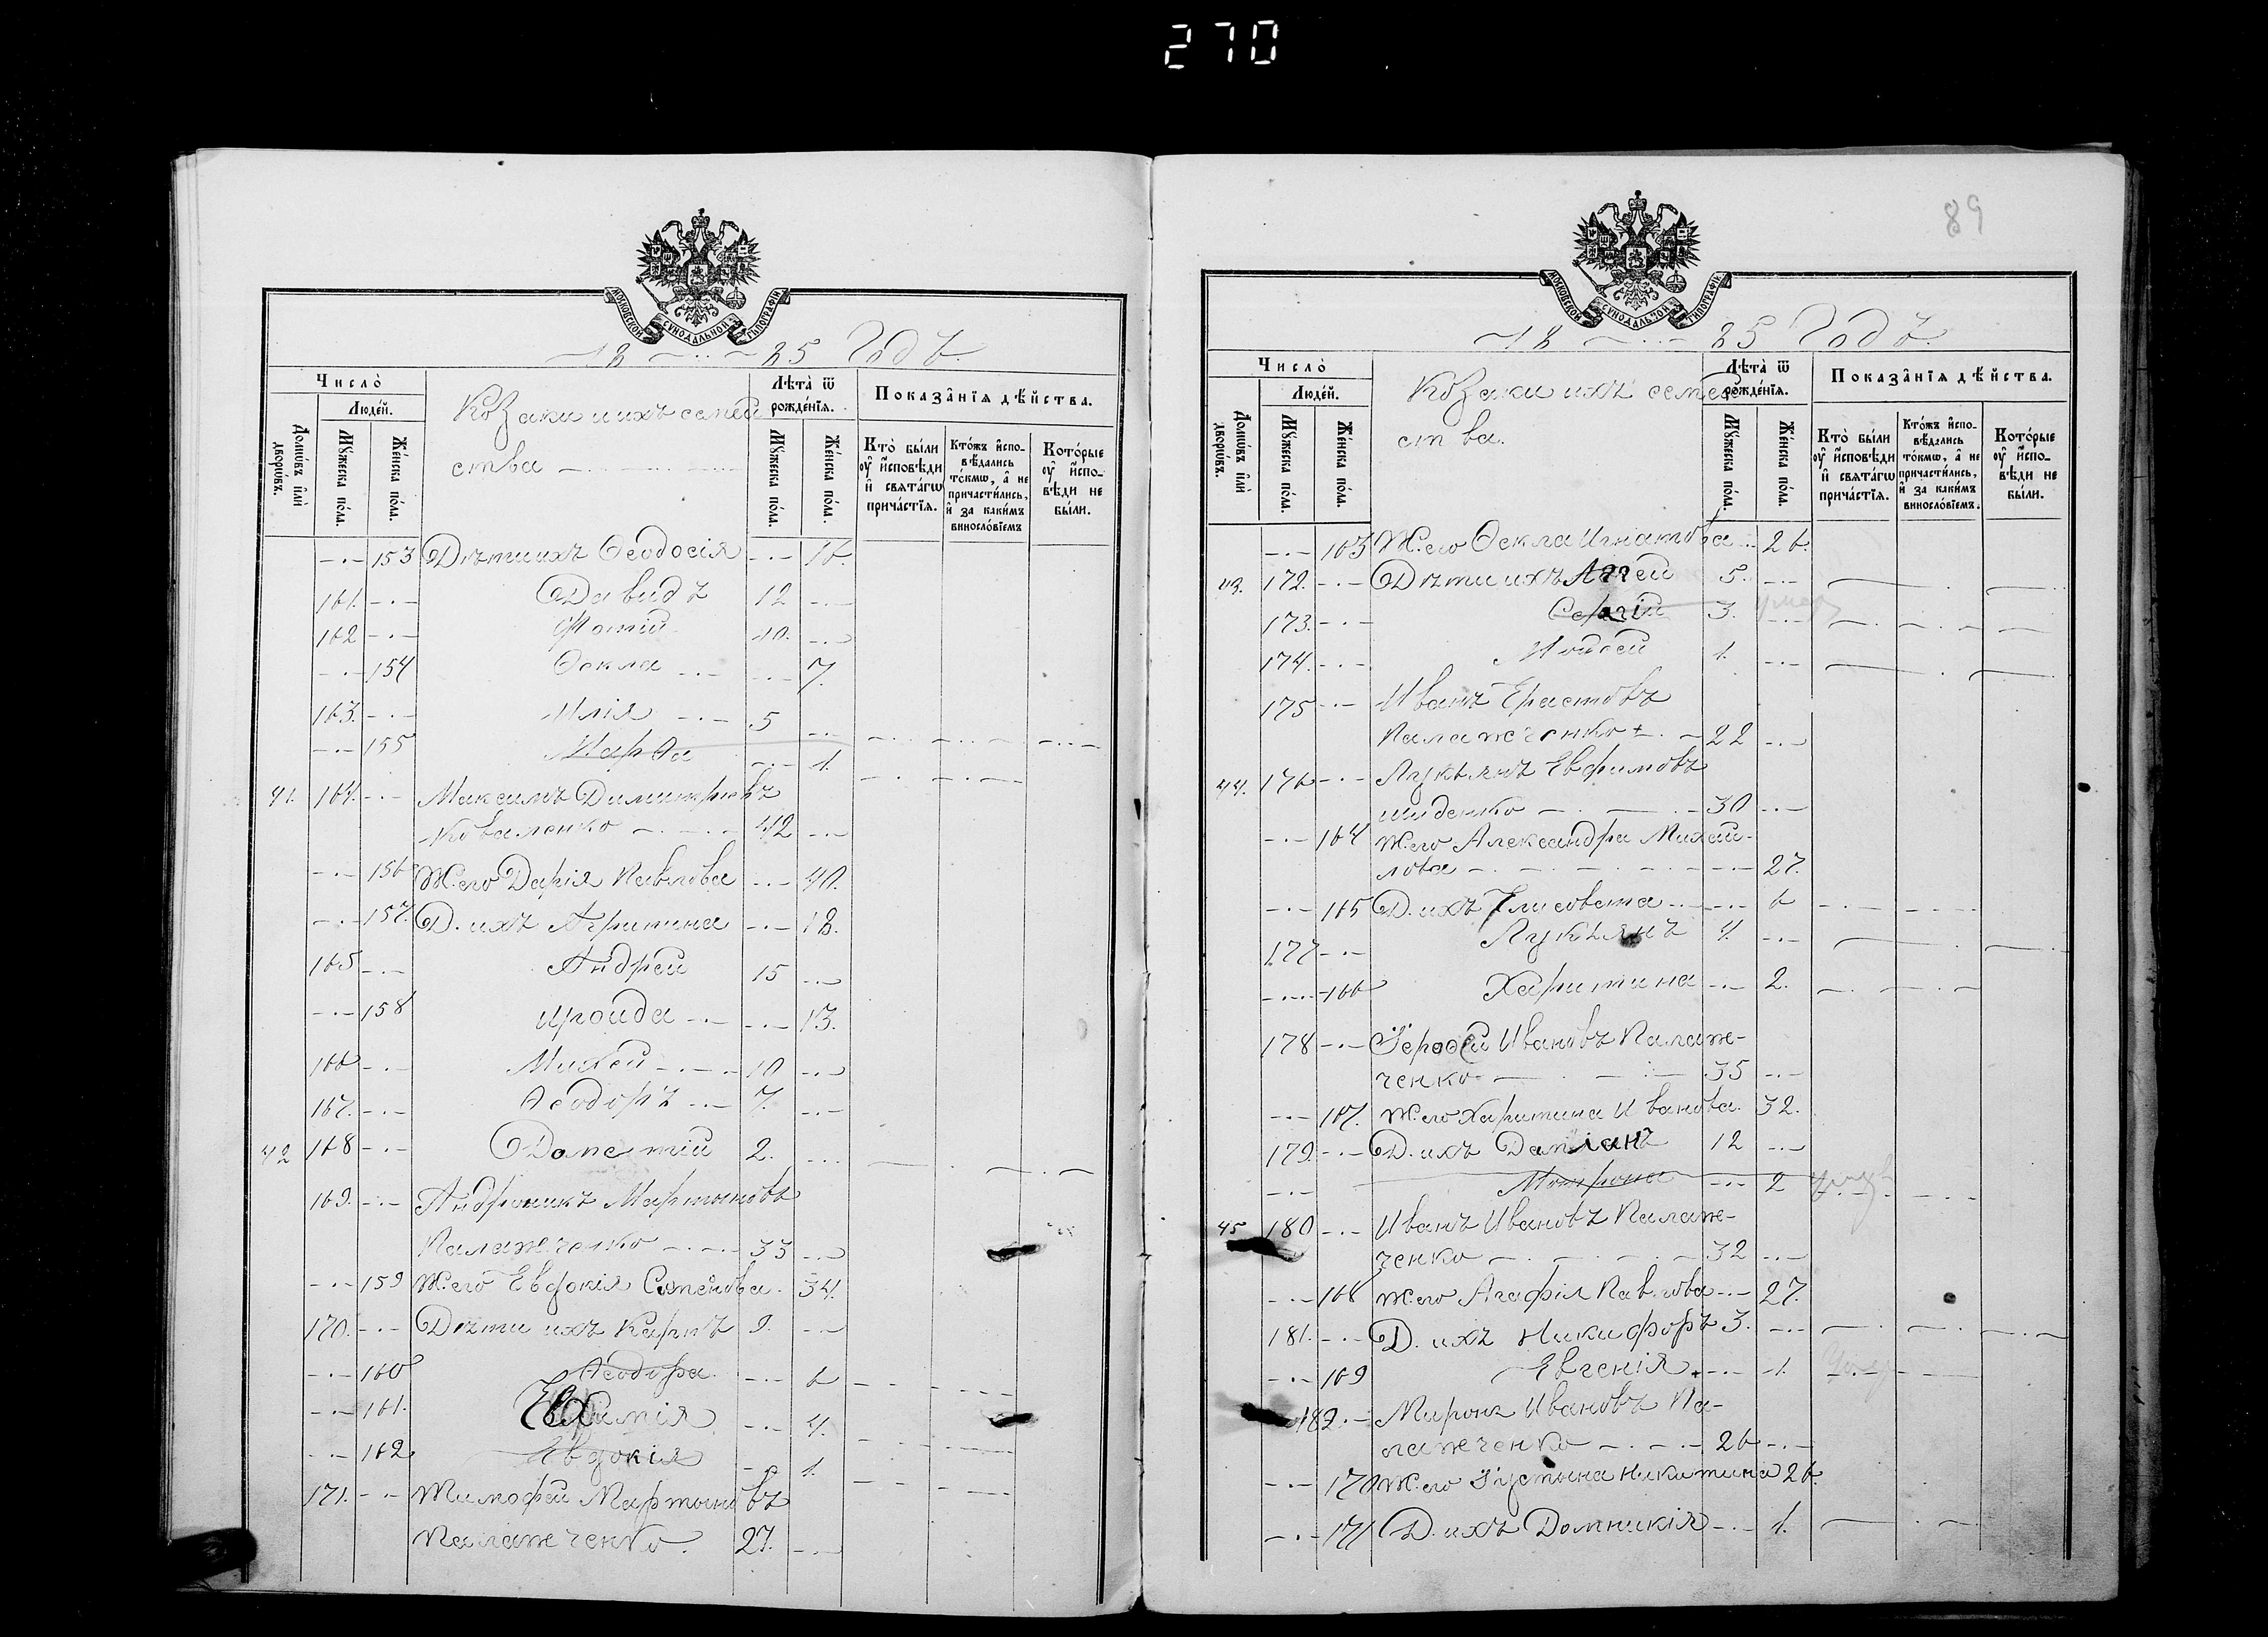 270
МОСКОВСКОЙ СѴНОДАЛЬНОЙ ТѴПОГРАФІИ
18 25 Годъ.
Число̀
Людей.
Домѡ́въ и҆лѝ дворѡ́въ.
Мꙋ́жеска по́ла.
Же́нска по́ла.
Козаки и ихъ семей
ства
Лѣта̀ ѿ рожде́нїѧ.
Мꙋ́жеска по́ла.
Же́нска по́ла.
Показа̑нїѧ дѣ́йства.
Кто̀ были ᲂу҆ и҆́сповѣди и҆ свѧта́гѡ прича́стїѧ.
Кто́жъ и҆спо-вѣ́дались то́кмѡ, а҆ не причасти́лись, и҆ за каки́мъ винослѡ́вїемъ
Кото́рые ᲂу҆ и҆́спо-вѣди не бы́ли.
153 Дѣти ихъ Ѳеодосія 16.
161. Давидъ 12
162 Фотій 10.
154 Ѳекла 7.
163. Илія 5
155 Марѳа 1.
41. 164. Максимъ Димитріевъ
Коваленко 42
156 Ж. его Дарія Павлова 40.
157. Д. ихъ Агрипина 18.
165 Андрей 15
158 Ироида 13.
166 Михей 10
167. Ѳеодоръ 7.
42 168 Дометій 2.
169. Андроникъ Мартыновъ
Палажченко 33
159 Ж. его Евдокія Семенова. 34.
170. Дѣти ихъ Карпъ 9.
160 Ѳеодора 6
161. Евфимія 4.
162 Евдокія 1.
171. Тимофей Мартыновъ
Палажченко. 27.
89
МОСКОВСКОЙ СѴНОДАЛЬНОЙ ТѴПОГРАФІИ
18 25 Годъ.
Число̀
Людей.
Домѡ́въ и҆лѝ дворѡ́въ.
Мꙋ́жеска по́ла.
Же́нска по́ла.
Козаки ихъ семей
ства.
Лѣта̀ ѿ рожде́нїѧ.
Мꙋ́жеска по́ла.
Же́нска по́ла.
Показа̑нїѧ дѣ́йства.
Кто̀ были ᲂу҆ и҆́сповѣди и҆ свѧта́гѡ прича́стїѧ.
Кто́жъ и҆спо-вѣ́дались то́кмѡ, а҆ не причасти́лись, и҆ за каки́мъ винослѡ́вїемъ.
Кото́рые ᲂу҆ и҆́спо-вѣди не бы́ли.
163 Ж. его Ѳекла Игнатова 26.
43. 172. Дѣти ихъ Аггей 5.
173. Сергій 3. умеръ
174. Мойсей 1.
175 Иванъ Ерастовъ
Палажченко 22
44. 176 Лукьянъ Евфимовъ
164 Ж. его Александра Михай-
лова 27.
165 Д. ихъ Елисовета 6
177 Лукьянъ 4.
166 Харитина 2.
178 Іерофей Ивановъ Палаж-
ченко 35
167. Ж. его Харитина Иванова. 32.
179. Д. ихъ Даміанъ 12
Мотрона 2
45 180 Иванъ Ивановъ Палаж-
ченко 32
168 Ж. его Агафія Павлова 27.
181. Д. ихъ Никифоръ 3.
169 Евгенія 1.
182. Миронъ Ивановъ Па-
лажченко 26
170 Ж. его Іустина Никитина 26.
171 Д. ихъ Домникія 1.